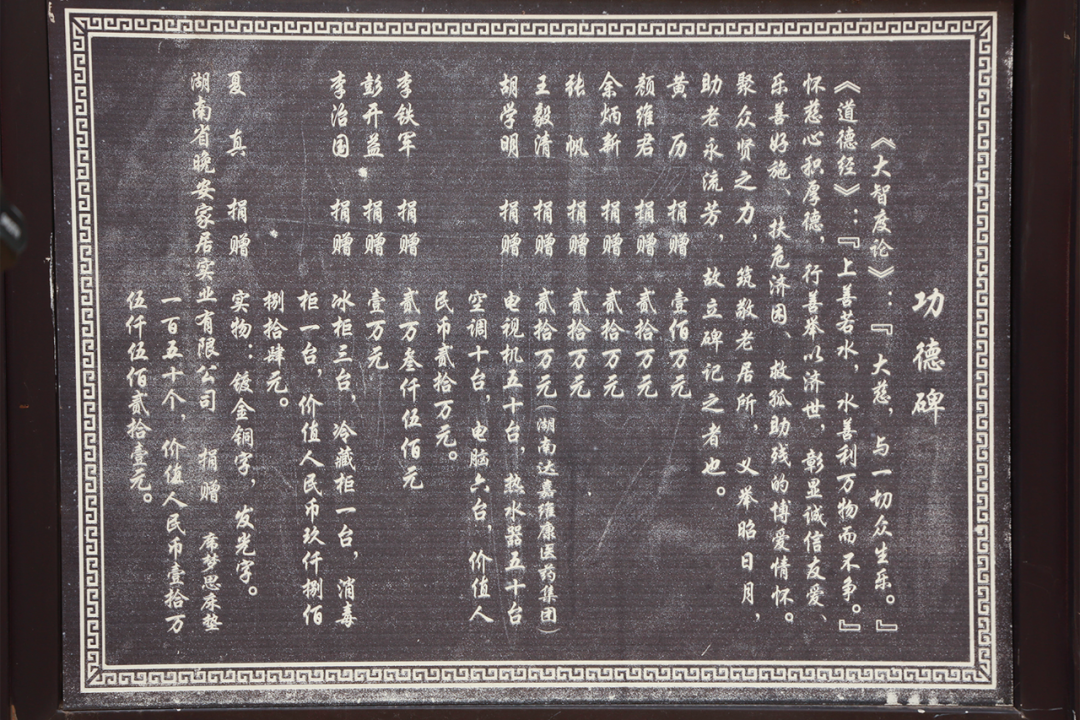 功德碑
《大智度论》：『大慈，与一切众生乐。』
《道德经》：『上善若水，水善利万物而不争。』
怀慈心积厚德，行善举以济世，彰显诚信友爱、
乐善好施、扶危济困、救孤助残的博爱情怀。
聚众贤之力，筑敬老居所，义举昭日月，
助老永流芳，故立碑记之者也。
黄历 捐赠 壹佰万元
颜维君 捐赠 贰拾万元
余炳新 捐赠 贰拾万元
张帆 捐赠 贰拾万元
王毅清 捐赠 贰拾万元（湖南达嘉维康医药集团）
胡学明 捐赠 电视机五十台，热水器五十台
空调十台，电脑六台，价值人
民币贰拾万元。
李铁军 捐赠 贰万叁仟伍佰元
彭开益 捐赠 壹万元
李治国 捐赠 冰柜三台，冷藏柜一台，消毒
柜一台，价值人民币玖仟捌佰
捌拾肆元。
夏真 捐赠 实物：镀金铜字，发光字。
湖南省晚安家居实业有限公司 捐赠 席梦思床垫
一百五十个，价值人民币壹拾万
伍仟伍佰贰拾壹元。